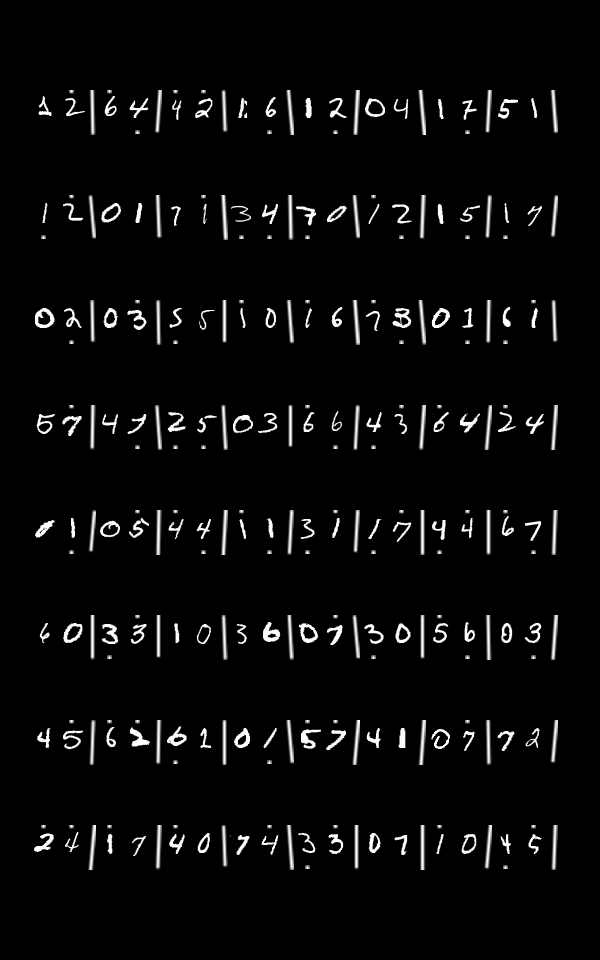 1 2 | 6 4 | 4 2 | 1 6 | 1 2 | 0 4 | 1 7 | 5 1 |
1 2 | 0 1 | 7 1 | 3 4 | 7 0 | 1 2 | 1 5 | 1 7 |
0 2 | 0 3 | 5 5 | 1 0 | 1 6 | 7 3 | 0 1 | 6 1 |
5 7 | 4 7 | 2 5 | 0 3 | 6 6 | 4 3 | 6 4 | 2 4 |
0 1 | 0 5 | 4 4 | 1 1 | 3 1 | 1 7 | 4 4 | 6 7 |
6 0 | 3 3 | 1 0 | 3 6 | 0 7 | 3 0 | 5 6 | 0 3 |
4 5 | 6 2 | 6 1 | 0 1 | 5 7 | 4 1 | 0 7 | 7 2 |
2 4 | 1 7 | 4 0 | 7 4 | 3 3 | 0 7 | 1 0 | 4 5 |